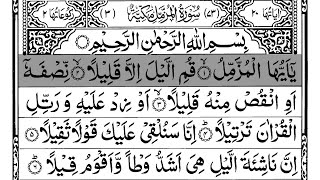 اٰیَاتُهَا ۲۰ (۷۳) سُوْرَةُ الْمُزَّمِّلِ مَكِّیَّةٌ (۳) رُكُوْعَاتُهَا ۲
بِسْمِ اللّٰهِ الرَّحْمٰنِ الرَّحِیْمِ
یٰۤاَیُّهَا الْمُزَّمِّلُ ۙ قُمِ الَّیْلَ اِلَّا قَلِیْلًا ۙ نِّصْفَهٗۤ
اَوِ انْقُصْ مِنْهُ قَلِیْلًا ۙ اَوْ زِدْ عَلَیْهِ وَ رَتِّلِ
الْقُرْاٰنَ تَرْتِیْلًا ؕ اِنَّا سَنُلْقِیْ عَلَیْكَ قَوْلًا ثَقِیْلًا
اِنَّ نَاشِئَةَ الَّیْلِ هِیَ اَشَدُّ وَطْاً وَّ اَقْوَمُ قِیْلًا ؕ